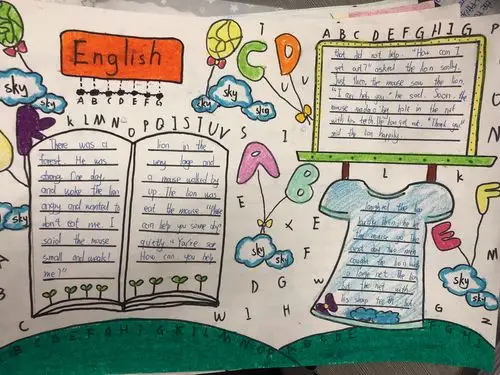 English
A B C D E F G
sky
sky
sky
sky
sky
sky
K L M N O P Q I S T U V
There was a
forest. He was
strong One day,
and woke the lion
angry and wanted to
don't eat me. I
said the mouse
small and weak!
me?"
lion in the
very large and
a mouse walked by
up The lion was
eat the mouse.
can help you some day"
quietly "You're so
How can you help
C D
A B
E F
A B C D E F G H I G
that did not help. "How can I
get out?" asked the lion sadly.
Just then, the mouse saw the lion.
"I can help you," he said. Soon, the
mouse made a big hole in the net
with his teeth. The lion got out. "Thank you"
said the lion happily.
laughed the lion
the next day two men
caught the lion with
a large net. The lion
bit the net with
his sharp teeth but